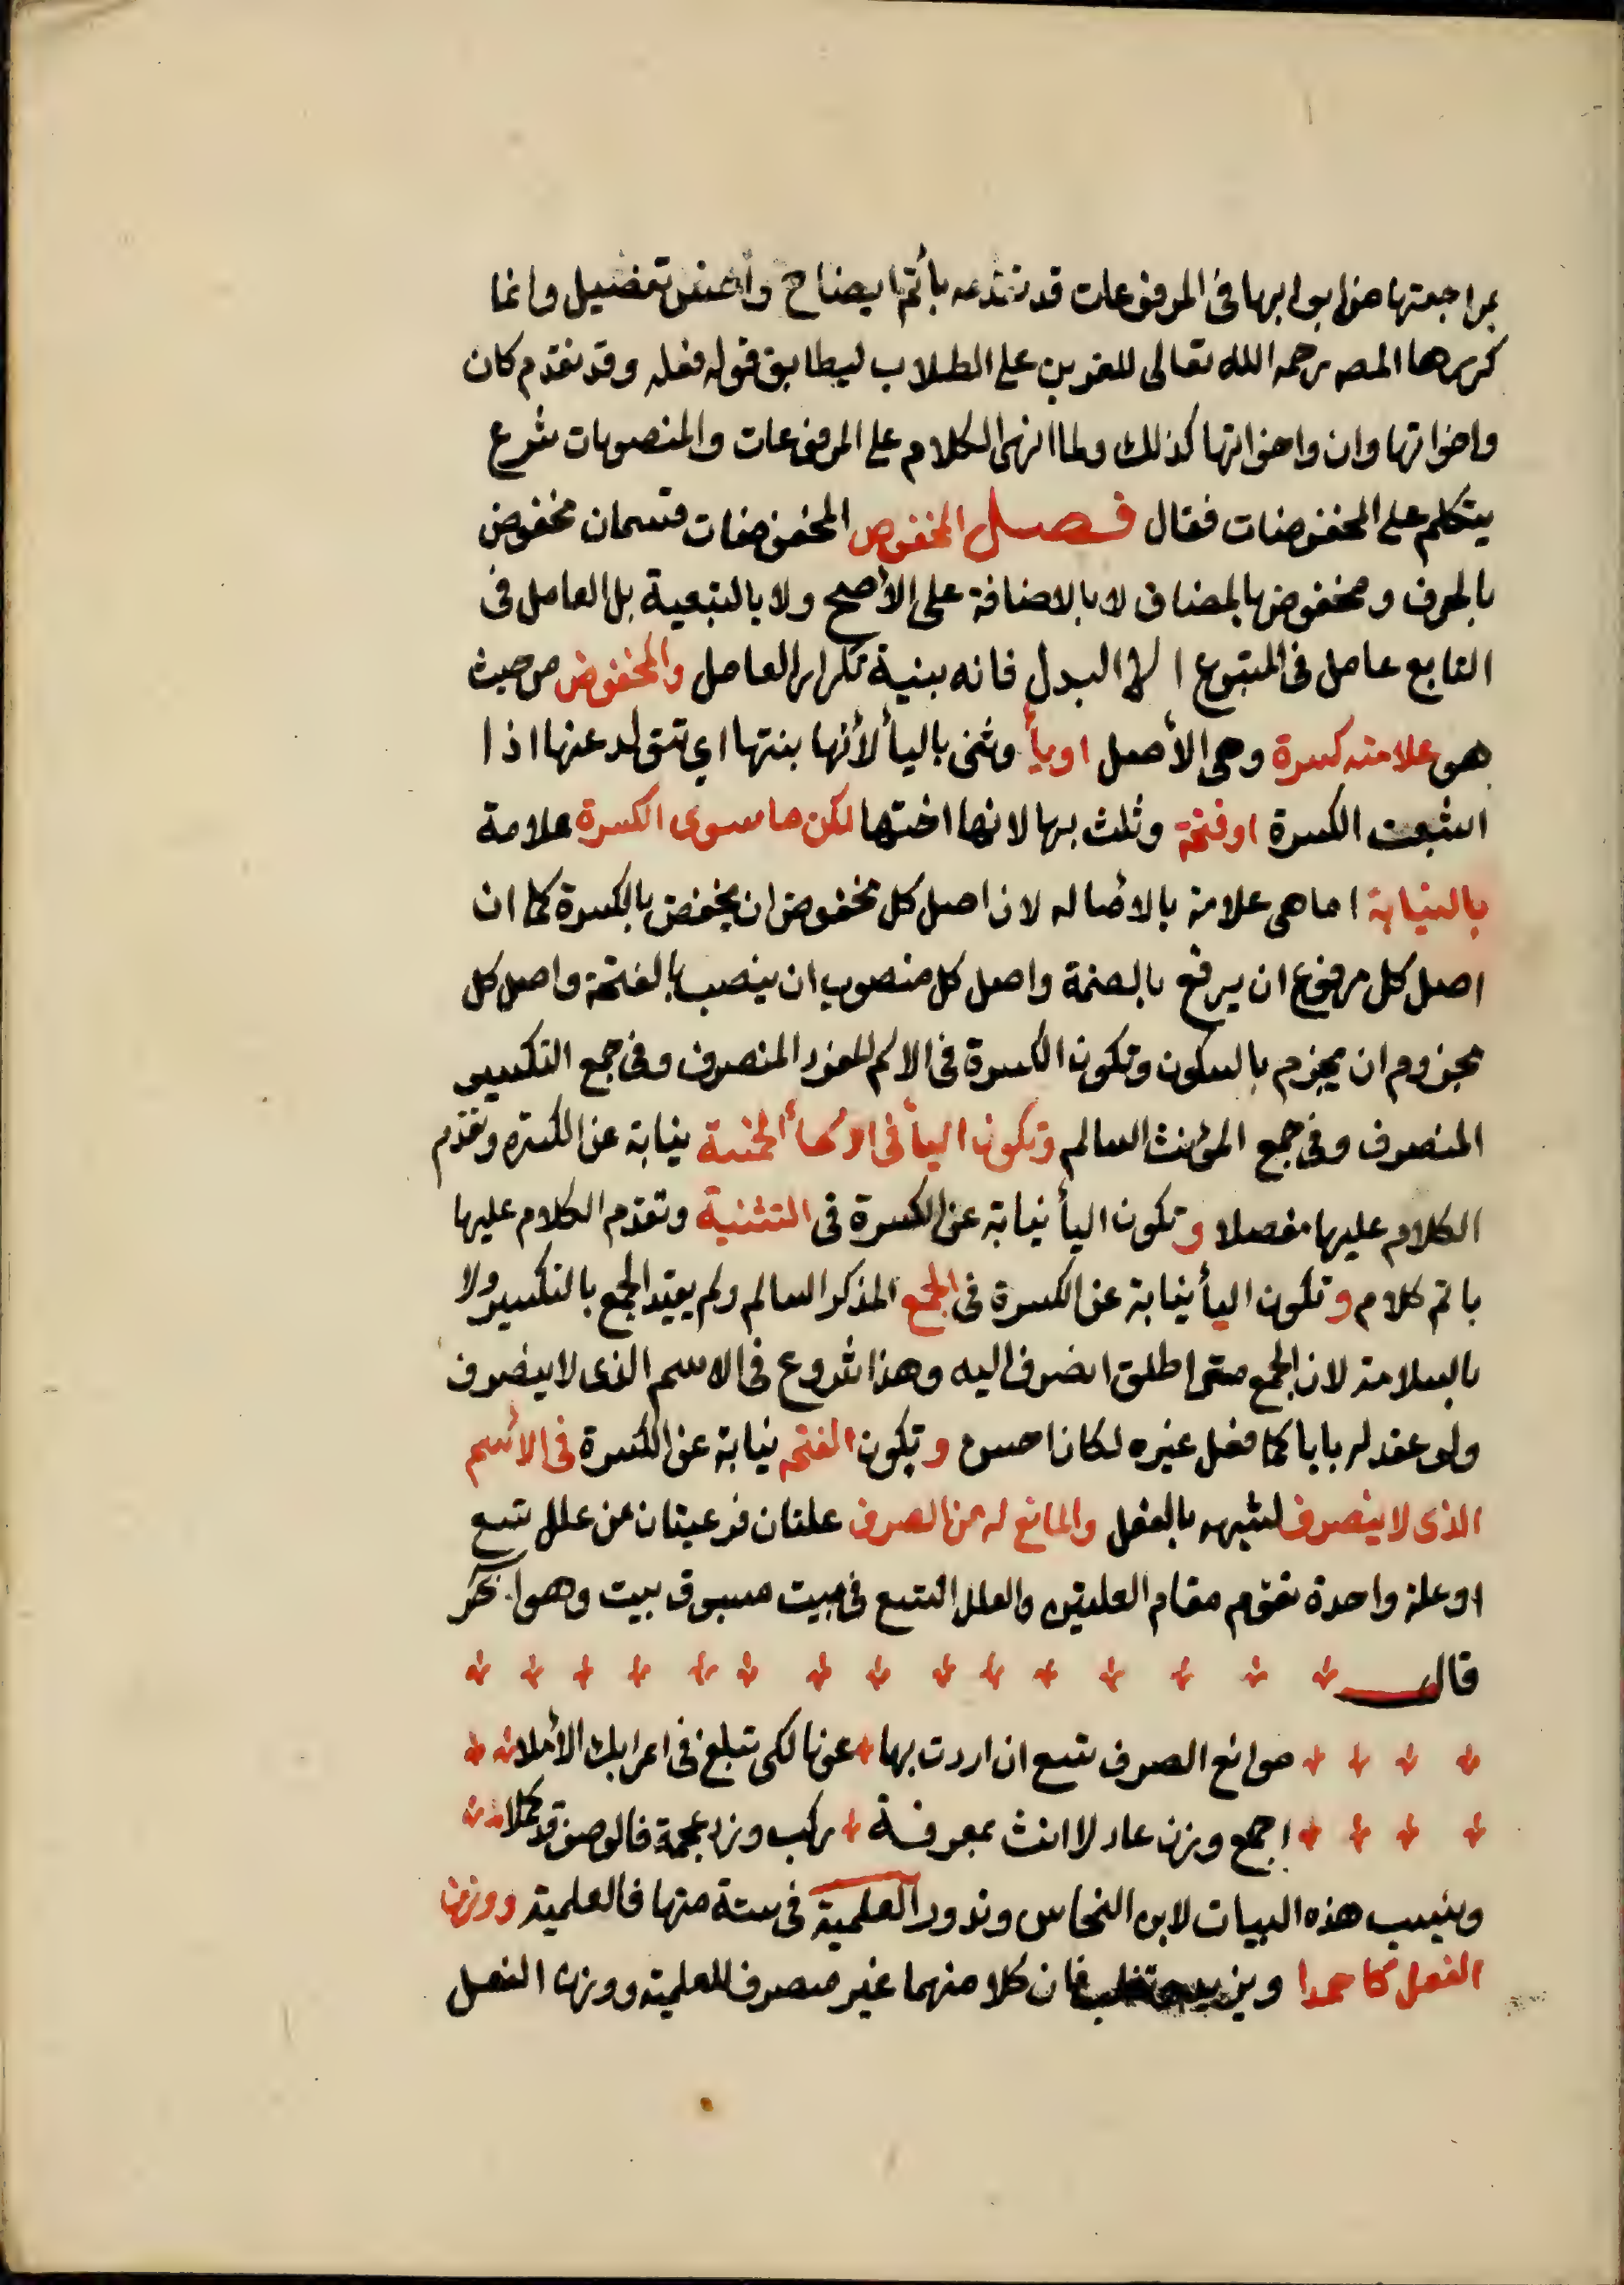 بمراجعتها من ابوابها فى المرفوعات قد تقدمه بأتم ايضاح وأحسن تفضيل وانما
كررها المصه رحمه الله تعالى للتمرين على الطلاب ليطابق قوله فعله وقد تقدم كان
واخواتها وان واخواتها كذلك ولما انهى الكلام على المرفوعات والمنصوبات شرع
يتكلم على المخفوضات فقال فصل المخفوض المخفوضات قسمان مخفوض
بالحرف ومخفوض بالمضاف لا بالاضافة على الأصح ولا بالتبعية بل العامل فى
التابع عامل فى المتبوع الا البدل فانه بنية تكرار العامل والمخفوض من حيث
هو علامته كسرة وهى الأصل اويأ وثنى باليأ لأنها بنتها اي تتولد عنها اذا
اشبعت الكسرة اوفتحة وثلث بها لانها اختها لكن ما سوى الكسرة علامة
بالنيابة اما هى علامة بالاصاله لان اصل كل مخفوض ان يخفض بالكسرة كما ان
اصل كل مرفوع ان يرفع بالضمة واصل كل منصوب ان ينصب بالفتحة واصل كل
مجزوم ان يجزم بالسكون وتكون الكسرة فى الاسم المفرد المنصرف وفى جمع التكسير
المنصرف وفى جمع المؤنث السالم وتكون اليأ فى الاسمأ الخمسة نيابة عن الكسره وتقدم
الكلام عليها مفصلا وتكون اليأ نيابة عن الكسرة فى التثنية وتقدم الكلام عليها
باتم كلام وتكون اليأ نيابة عن الكسرة فى الجمع المذكر السالم ولم يقيد الجمع بالتكسير ولا
بالسلامة لان الجمع متى اطلق انصرف اليه وهذا شروع فى الاسم الذى لا ينصرف
ولو عقد له بابا كما فعل غيره لكان احسن وتكون الفتحه نيابة عن الكسرة فى الأسم
الذى لا ينصرف لشبهه بالفعل والمانع له من الصرف علتان فرعيتان من علل تسع
اوعلة واحدة تقوم مقام العلتين والعلل التسع فى بيت مسبوق ببيت وهو
قال
موانع الصرف تسع ان اردت بها عونا لكى تبلغ فى اعرابك الأملا
اجمع وزن عادلا انث بمعرفة ركب وزد عجمة فالوصف قد كملا
وينسب هذه البيات لابن النحاس وتدور العلمية فى ستة منها فالعلمية ووزن
الفعل كاحمدا ويزيد فان كلا منهما غير منصرف للعلمية ووزن الفعل